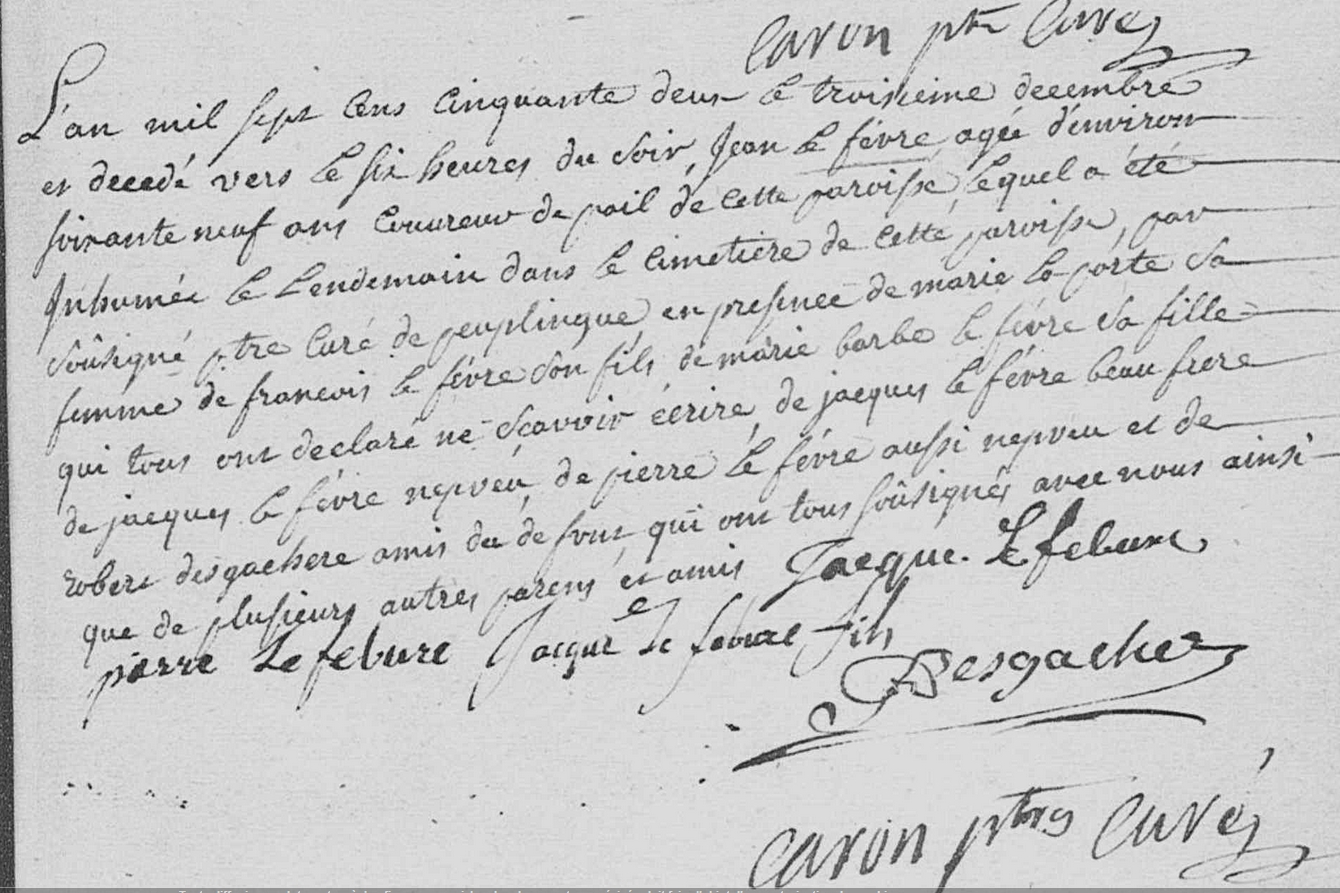 Caron ptre Curé
L'an mil sept cens cinquante deux le troisieme decembre
est decedé vers le six heures du soir, Jean le févre agée d'environ
soixante neuf ans couvreur de pail de cette paroisse, lequel a été
Inhumée le Lendemain dans le cimetiére de cette paroisse, par
soûsigné ptre Curé de peuplingue, en presence de marie la porte sa
femme de francois le févre son fils, de marie barbe le févre sa fille
qui tous ont declaré ne sçavoir écrire, de jacques le févre beau frere
de jacques le févre nepveu, de pierre le févre aussi nepveu et de
robert desgachere amis du defunt, qui ont tous soûsignés avec nous ainsi
que de plusieurs autres parens et amis Jacque Lefebure
pierre Lefebure Jacque Le febure fils
Desgacher
caron ptre Curé